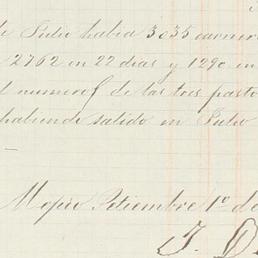 de Julio habia 3035 carner
2762 en 22 dias y 1290 en
el numero de las tres pasto
habiendo salido en Julio
Setiembre 1º de
J.